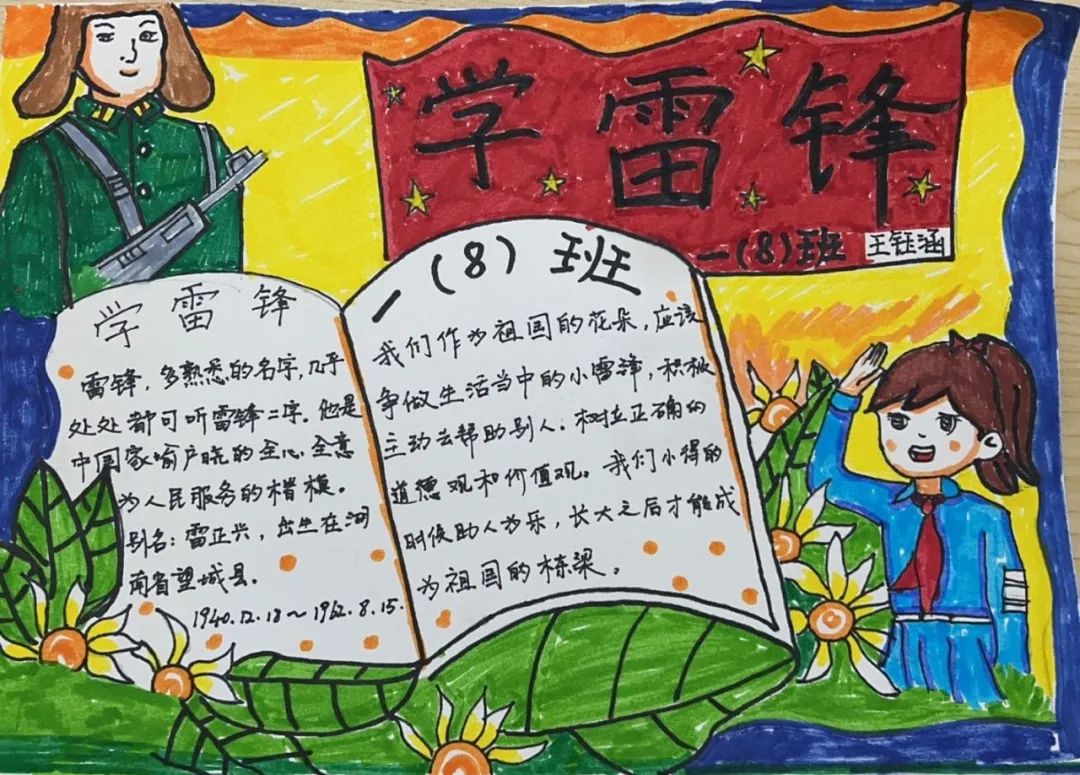 学雷锋
一(8)班 王钰涵
学雷锋
雷锋，多熟悉的名字，几乎
处处都可听雷锋二字。他是
中国家喻户晓的全心全意
为人民服务的楷模。
别名：雷正兴，出生在河
南省望城县。
1940.12.18～1962.8.15.
一(8)班
我们作为祖国的花朵，应该
争做生活当中的小雷锋，积极
主动去帮助别人；树立正确的
道德观和价值观。我们小得的
时侯助人为乐，长大之后才能成
为祖国的栋梁。